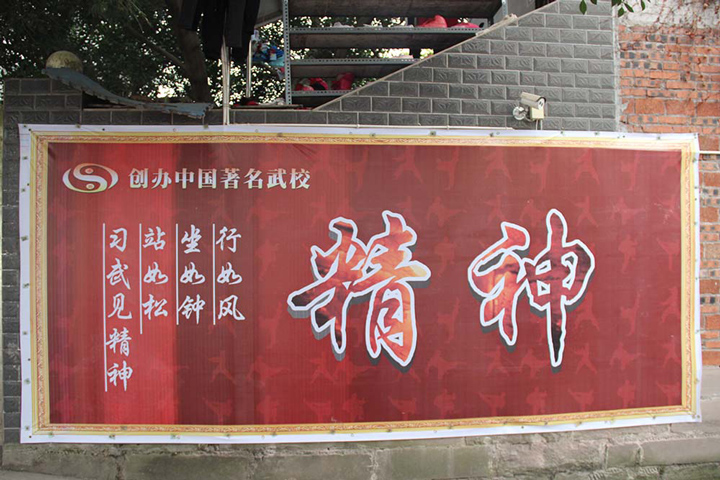 创办中国著名武校
行如风
坐如钟
站如松
习武见精神
精神